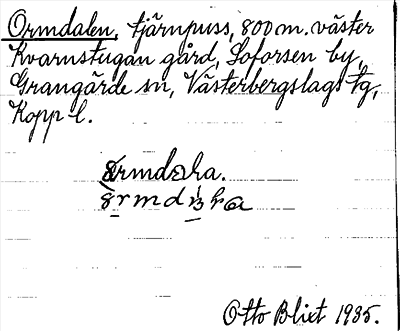 Ormdalen, tjärnpuss, 800 m. väster
Kvarnstugan gård, Soforsen by,
Grangärde sn, Västerbergslags tg,
Kopp l.
Otto Blixt 1935.